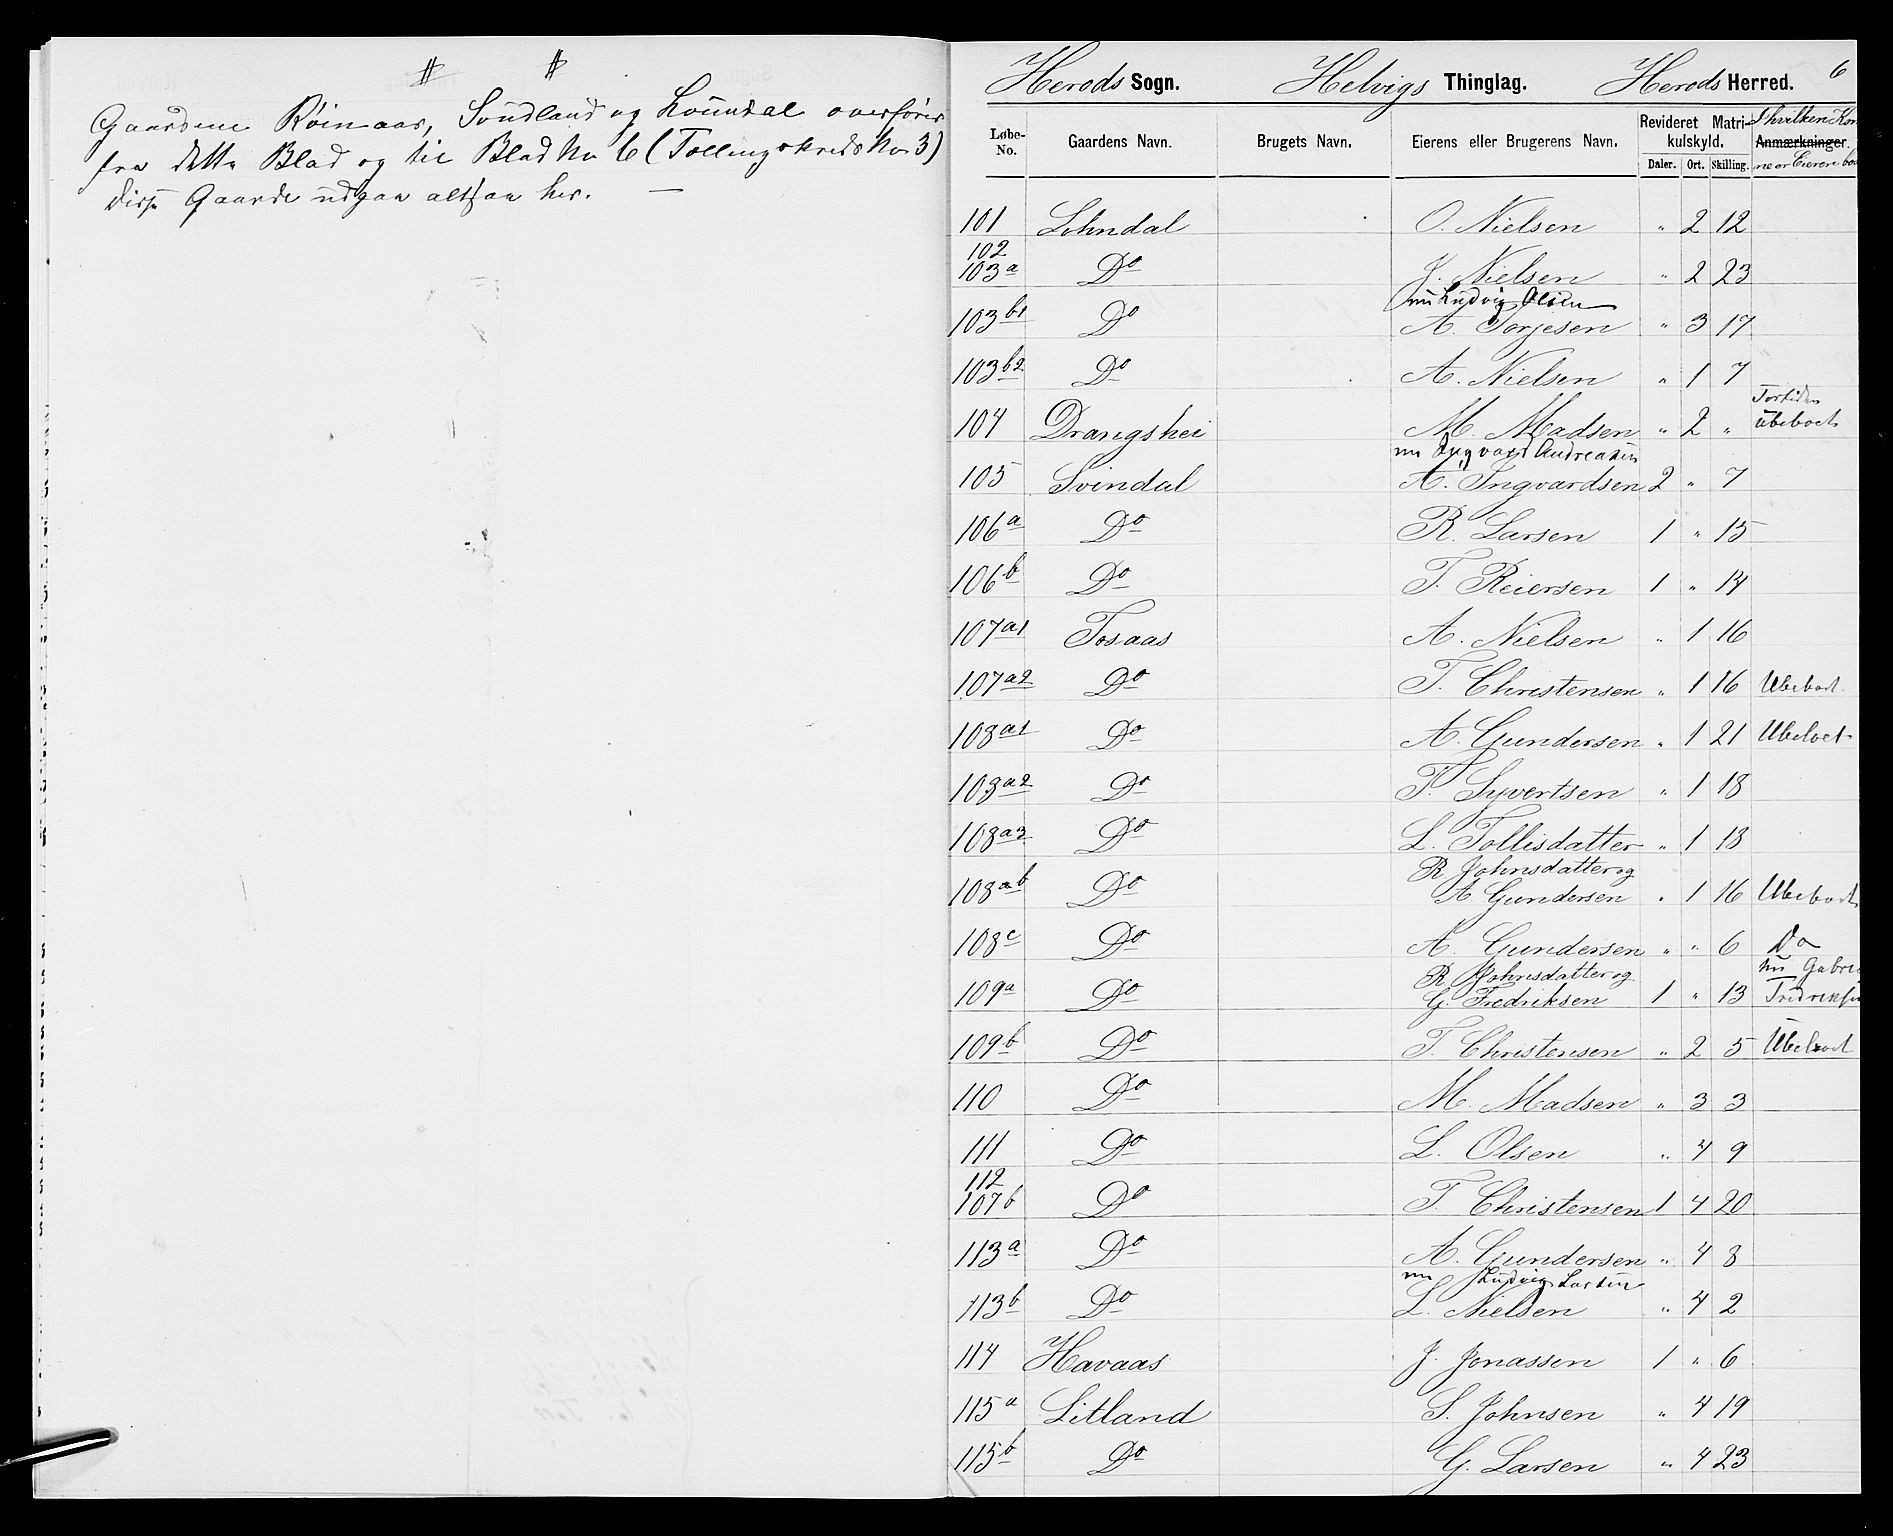 # #
Gaardene Röinaas, Sundland og Loundal overföres
fra dette Blad og til Blad No 6 (Tællingskreds No 3)
Disse Gaarde udgaa altsaa her. —
6
Herods Sogn. Helvigs Thinglag. Herods Herred.
Løbe-No. Gaardens Navn. Brugets Navn. Eierens eller Brugerens Navn. Revideret Matrikulskyld. Daler. Ort. Skilling. Anmærkninger. I hvilken Kom
ne er Eieren bo
101 Lohndal O. Nielsen " 2 12
102
103a Do J. Nielsen " 2 23
nu Ludvig Olsen
103b1 Do A. Torjesen " 3 17
103b2 Do A. Nielsen " 1 7
104 Drangshei M. Madsen " 2 " Fortiden ubeboet
nu Ingvard Andreasen
105 Svindal A. Ingvardsen 2 " 7
106a Do R. Larsen 1 " 15
106b Do T. Reiersen 1 " 14
107a1 Tosaas A. Nielsen " 1 16
107a2 Do T. Christensen " 1 16 Ubeboet
108a1 Do A. Gundersen " 1 21 Ubeboet
108a2 Do T. Syvertsen " 1 18
108a3 Do L. Tollisdatter " 1 18
R. Johnsdatter og
108ab Do A. Gundersen " 1 16 Ubeboet
108c Do A. Gundersen " " 6 Do
R. Johnsdatter og nu Gabrie
109a Do G. Fredriksen 1 " 13 Fredrikse
109b Do T. Christensen " 2 5 Ubeboet
110 Do M. Madsen " 3 3
111 Do L. Olsen " 4 9
112
107b Do T. Christensen 1 4 20
113a Do A. Gundersen " 4 8
nu Ludvig Larsen
113b Do L. Nielsen " 4 2
114 Havaas J. Jonassen 1 " 6
115a Litland S. Johnsen " 4 19
115b Do G. Larsen " 4 23